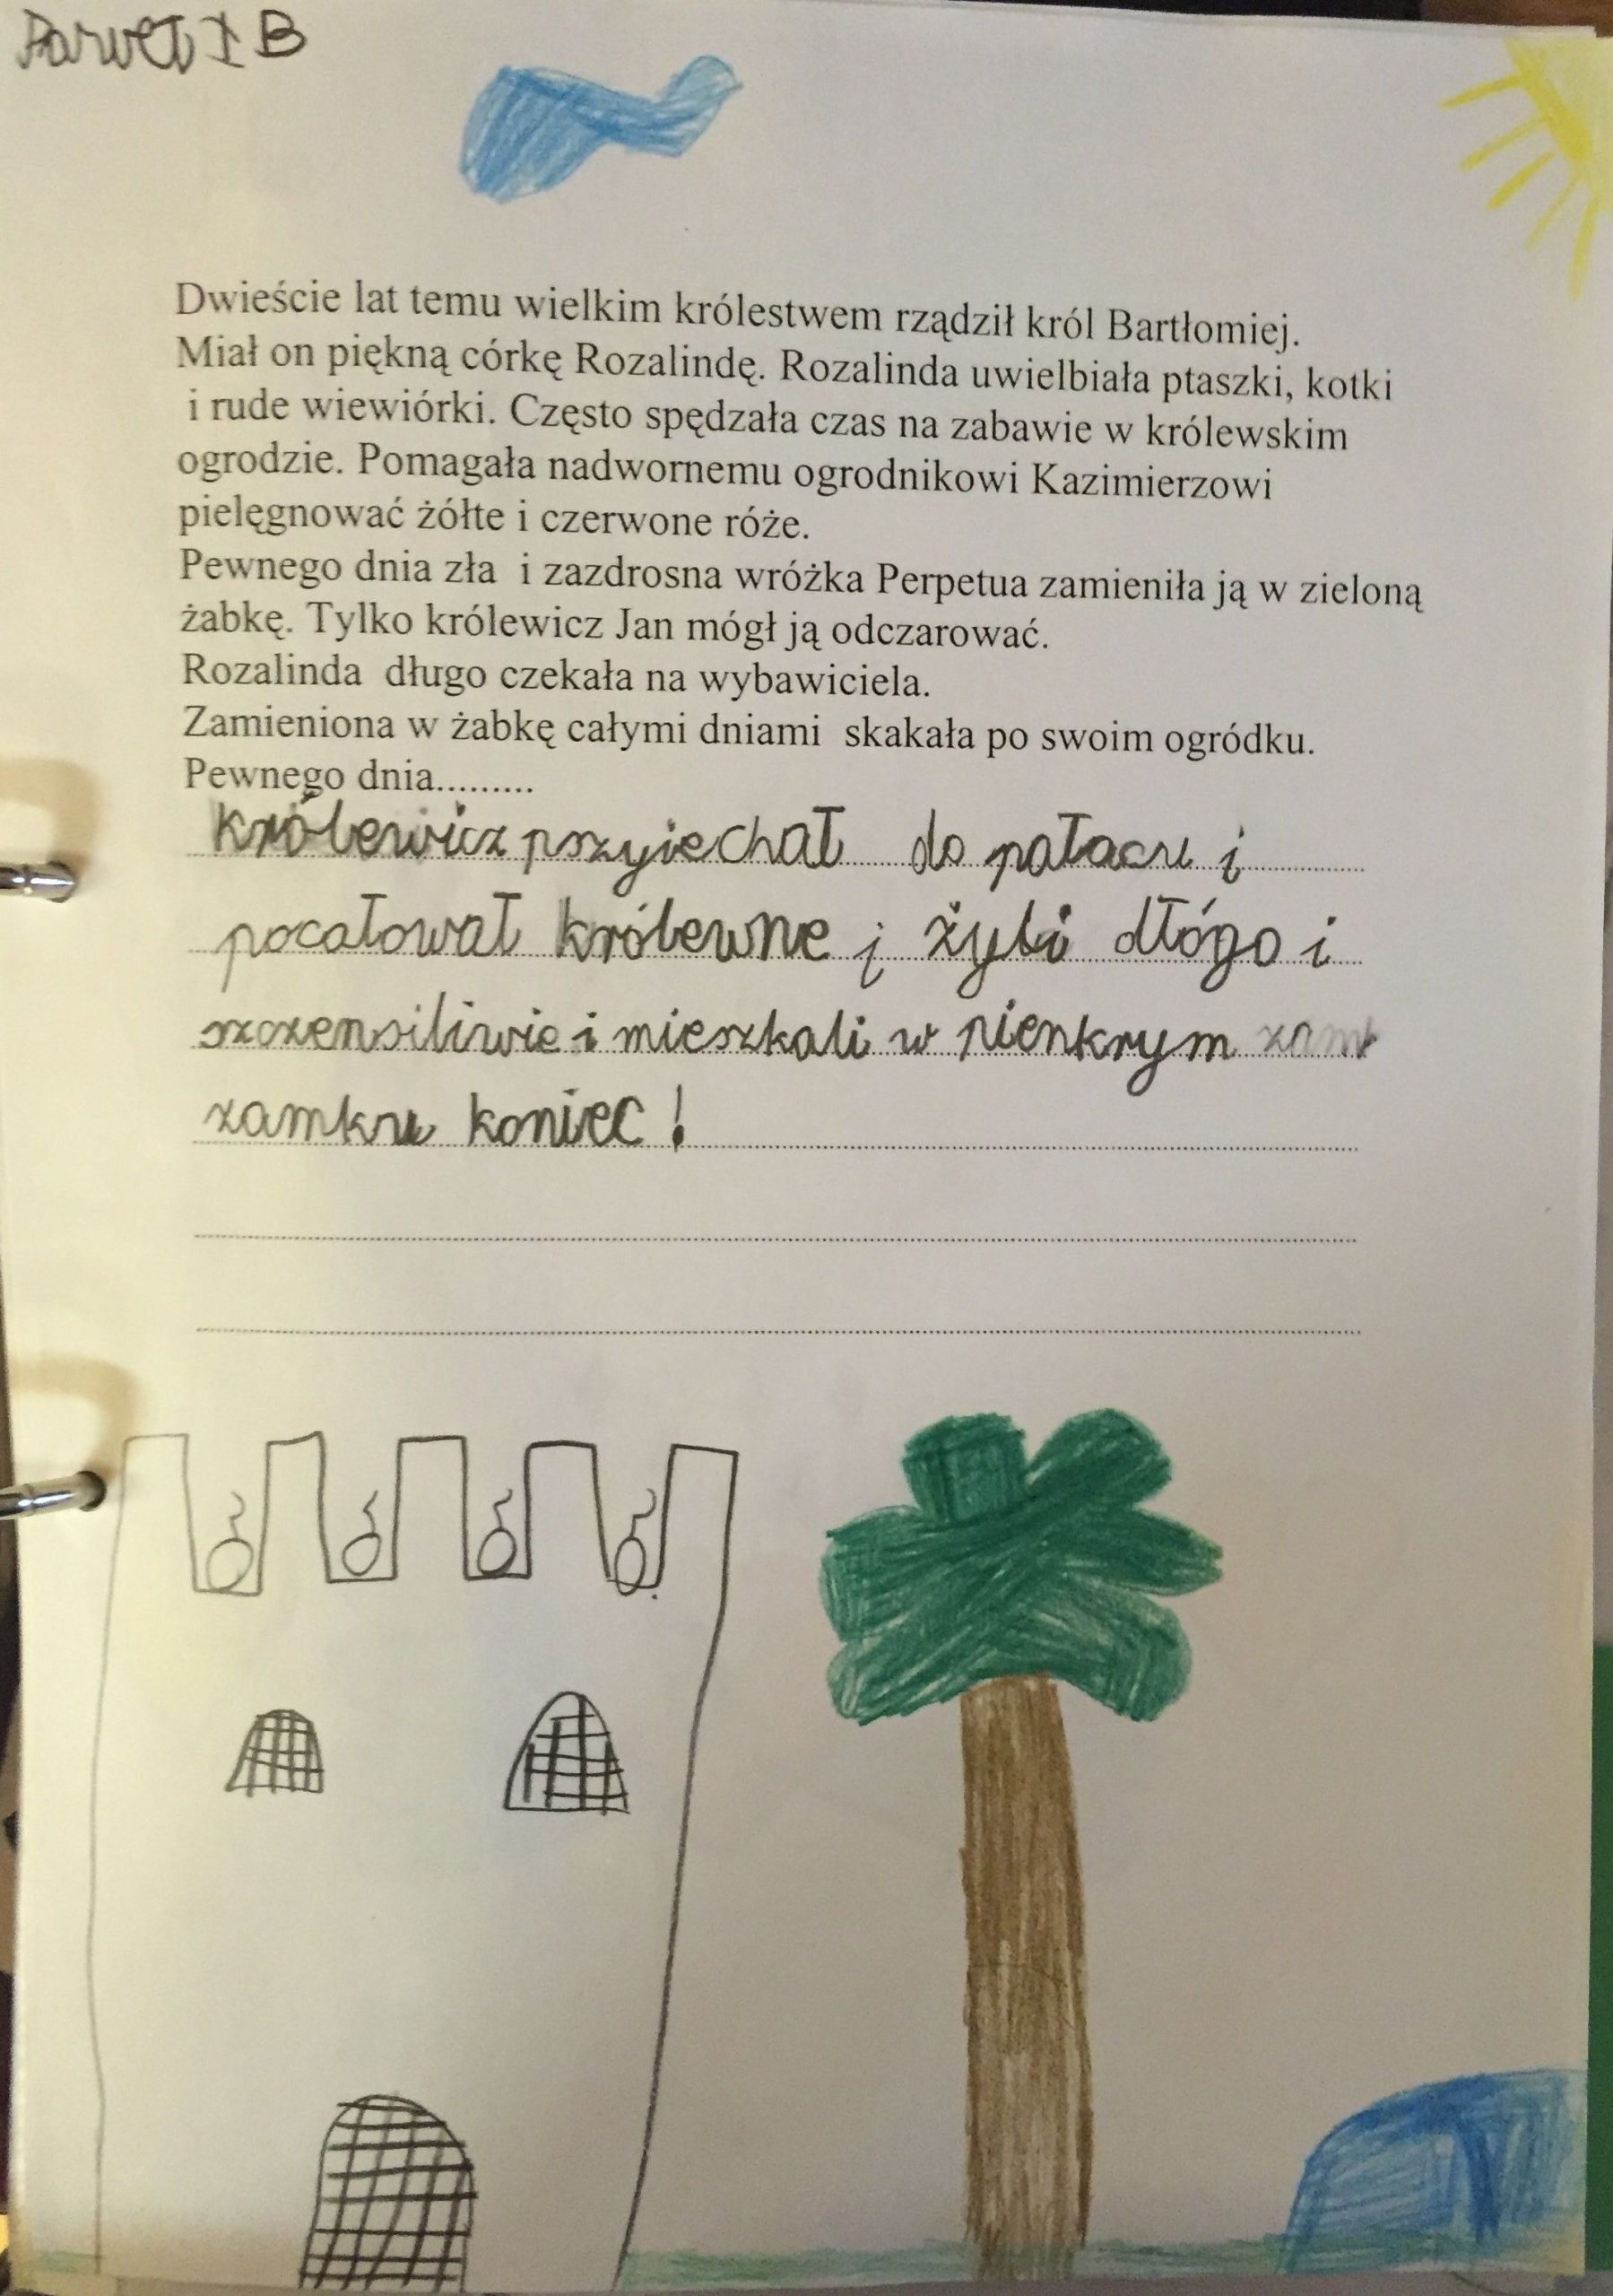 Paweł I B
Dwieście lat temu wielkim królestwem rządził król Bartłomiej.
Miał on piękną córkę Rozalindę. Rozalinda uwielbiała ptaszki, kotki
i rude wiewiórki. Często spędzała czas na zabawie w królewskim
ogrodzie. Pomagała nadwornemu ogrodnikowi Kazimierzowi
pielęgnować żółte i czerwone róże.
Pewnego dnia zła i zazdrosna wróżka Perpetua zamieniła ją w zieloną
żabkę. Tylko królewicz Jan mógł ją odczarować.
Rozalinda długo czekała na wybawiciela.
Zamieniona w żabkę całymi dniami skakała po swoim ogródku.
Pewnego dnia.........
Królewicz pszyjechał do pałacu i
pocałował królewne i żyli dłógo i
szczensiliwie i mieszkali w pienkrym zamk
zamku koniec!